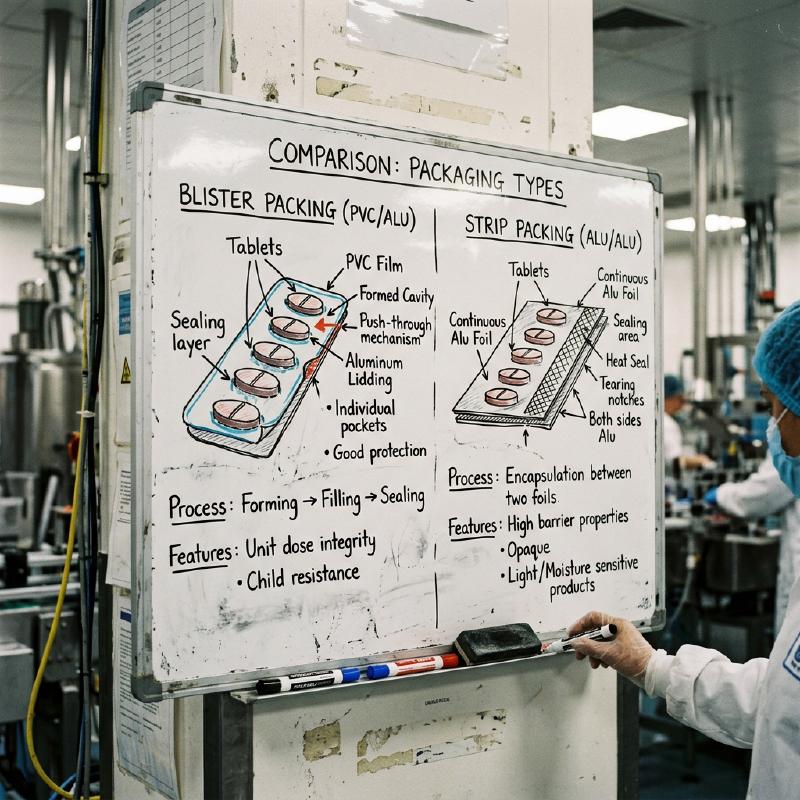 COMPARISON: PACKAGING TYPES
BLISTER PACKING (PVC/ALU)
Tablets
PVC Film
Formed Cavity
Push-through
mechanism
Sealing
layer
Aluminum
Lidding
• Individual
pockets
• Good protection
Process: Forming → Filling → Sealing
Features: Unit dose integrity
• Child resistance
STRIP PACKING (ALU/ALU)
Tablets
Continuous
Alu Foil
Continuous
Alu Foil
Sealing
area
Heat Seal
Tearing
notches
Both sides
Alu
Process: Encapsulation between
two foils
Features: High barrier properties
• Opaque
• Light/Moisture sensitive
products